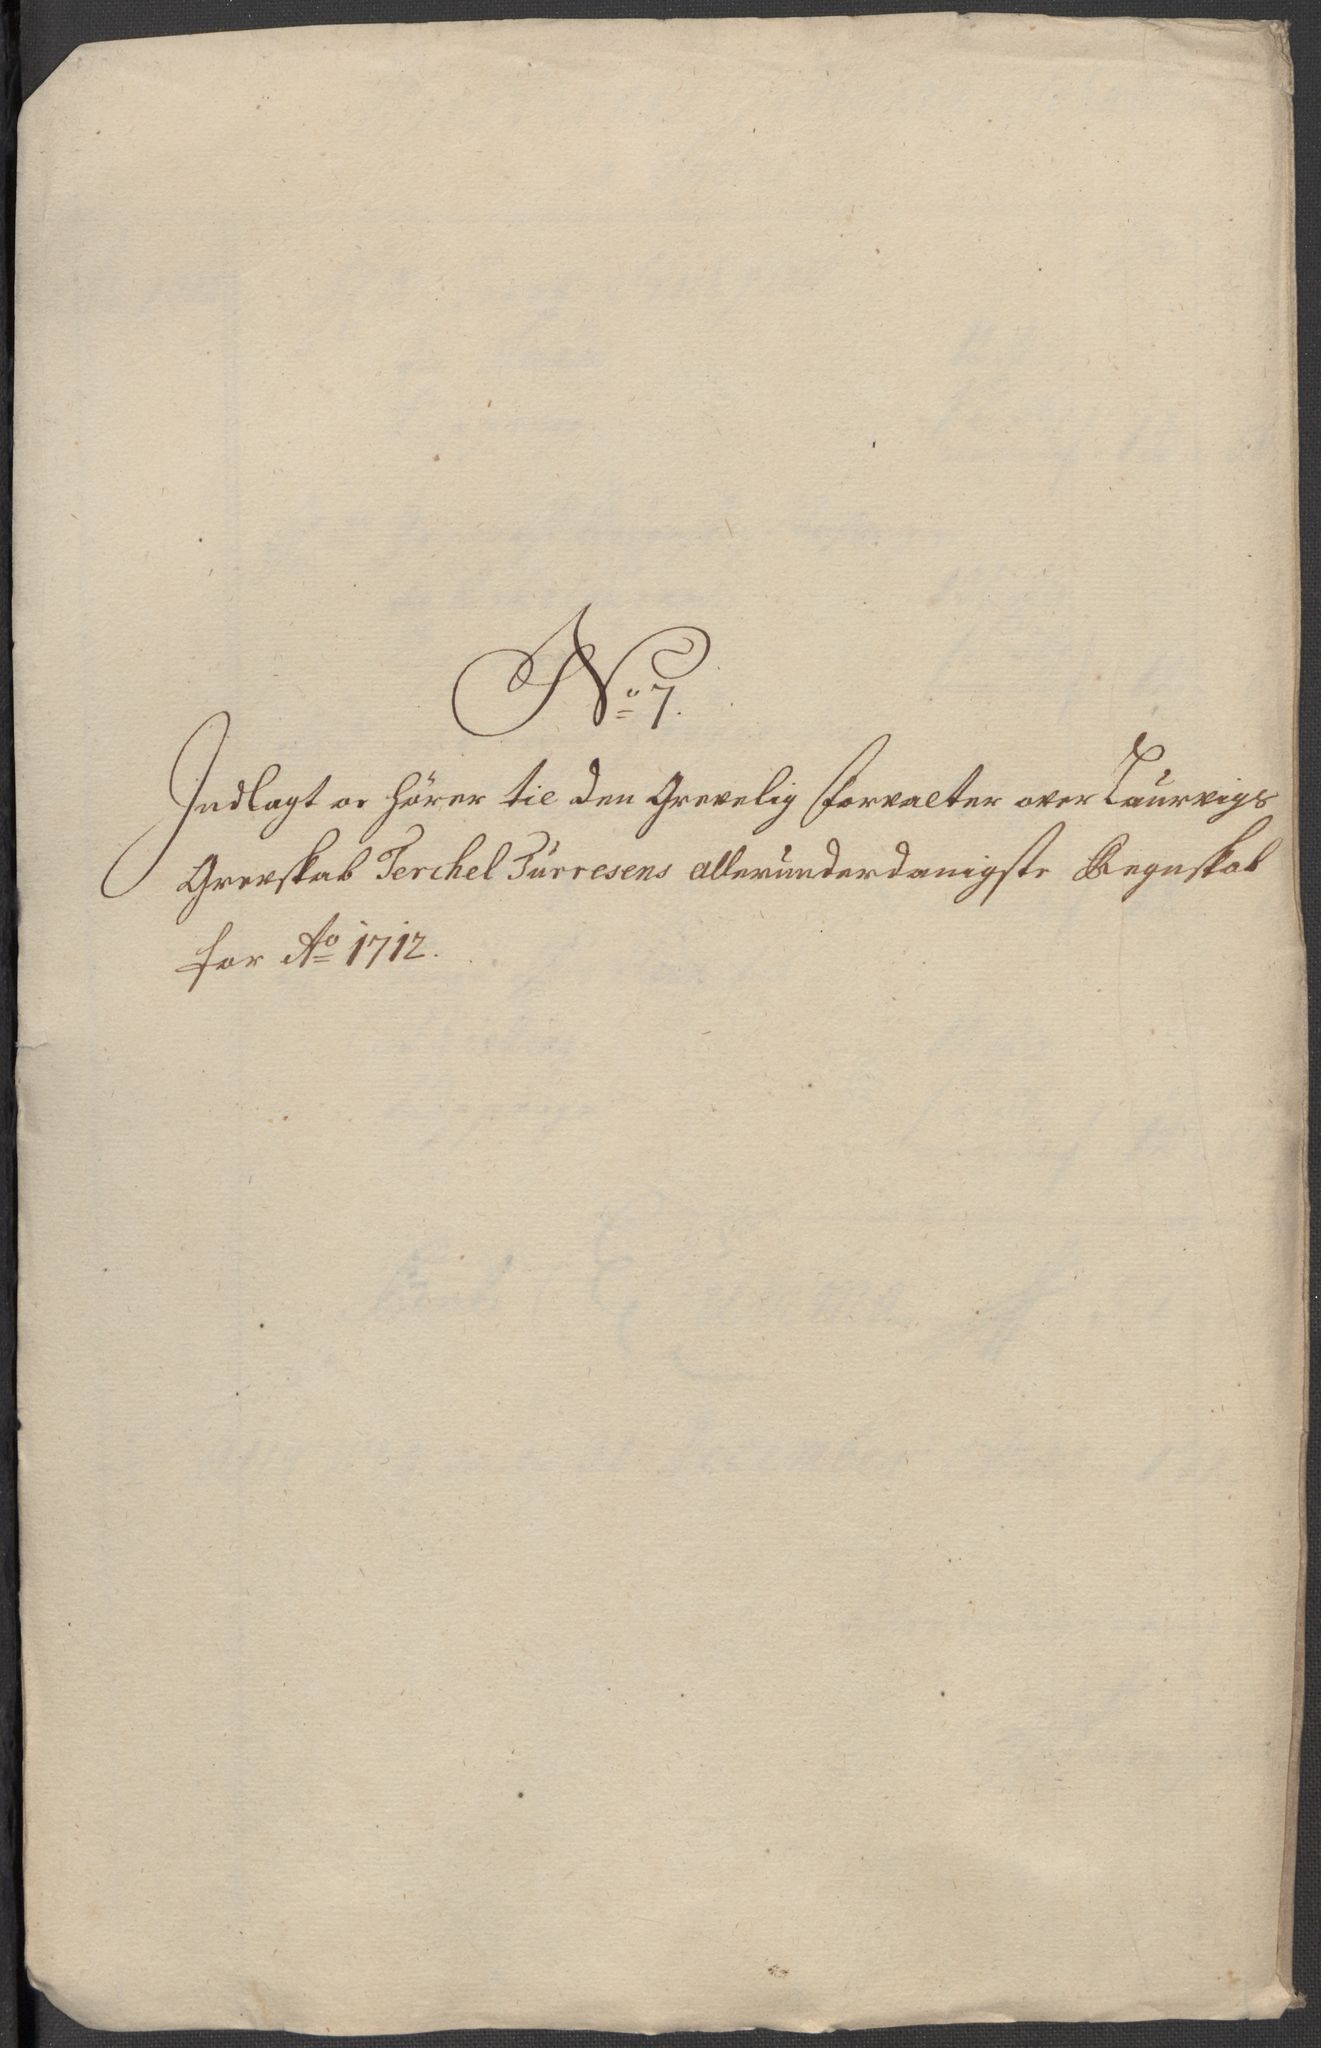 No 7.
Indlagt oc hörer til den Grevelig forvalter over Laurvigs
Grevskab Terchel Türresens allerunderdanigste Regnskab
for Ao 1712.